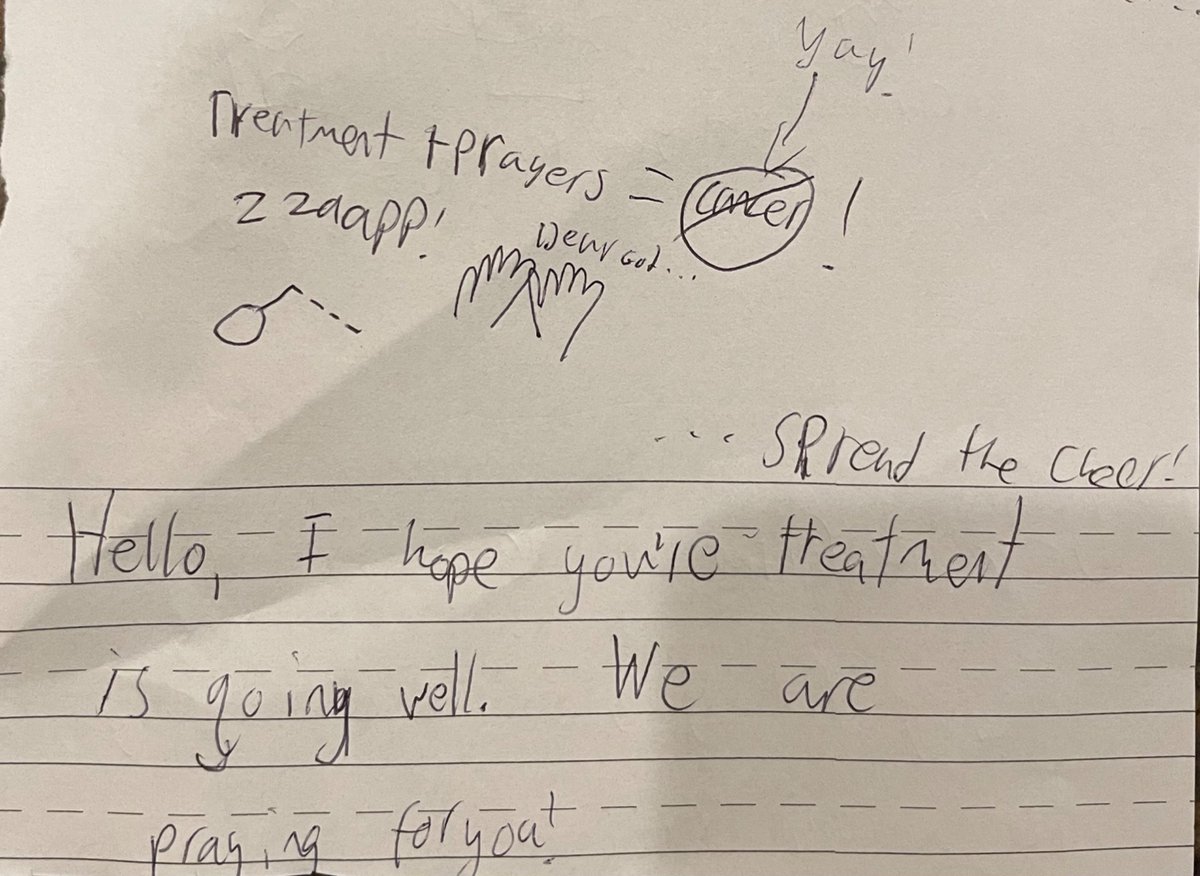 yay!
Treatment + prayers = cancer!
zzaapp!
Dear God...
... spread the cheer!
Hello, I hope you're treatment
is going well. We are
praying for you!